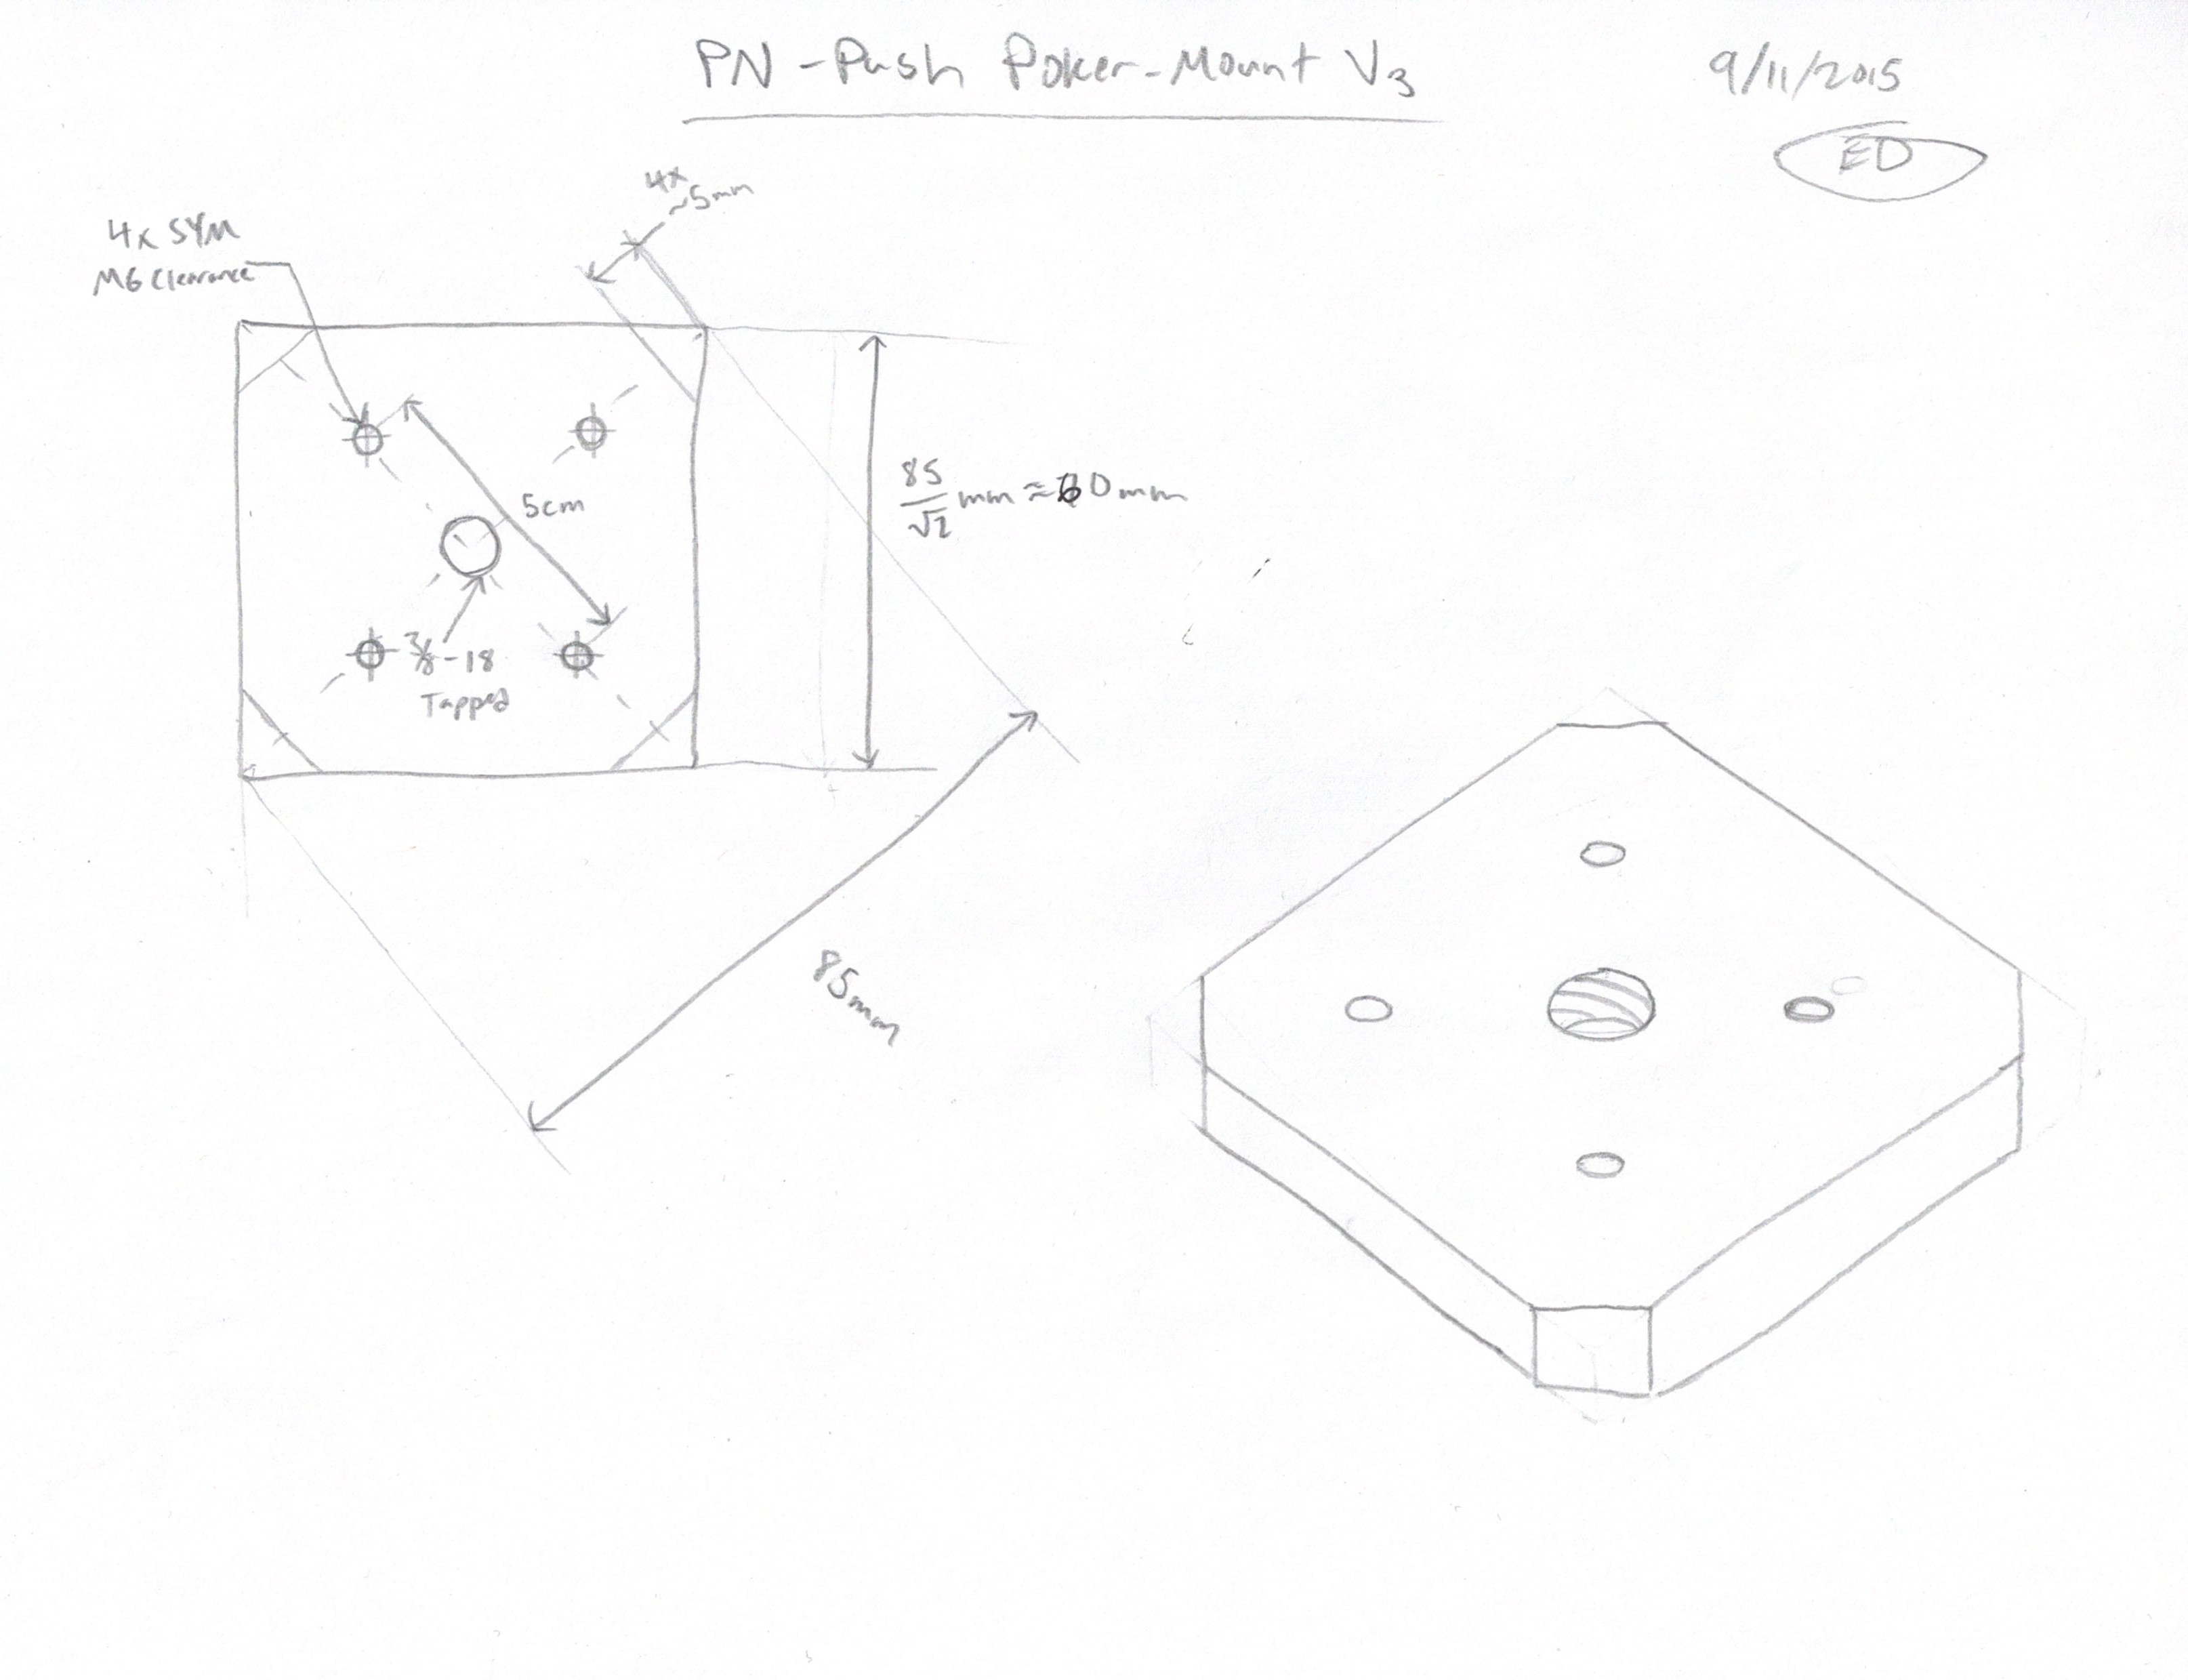 PN - Push Poker-Mount V3
9/11/2015
ED
4x
~5mm
4x SYM
M6 Clearance
5cm
85
√2
mm ≈ 60mm
3/8-18
Tapped
85mm